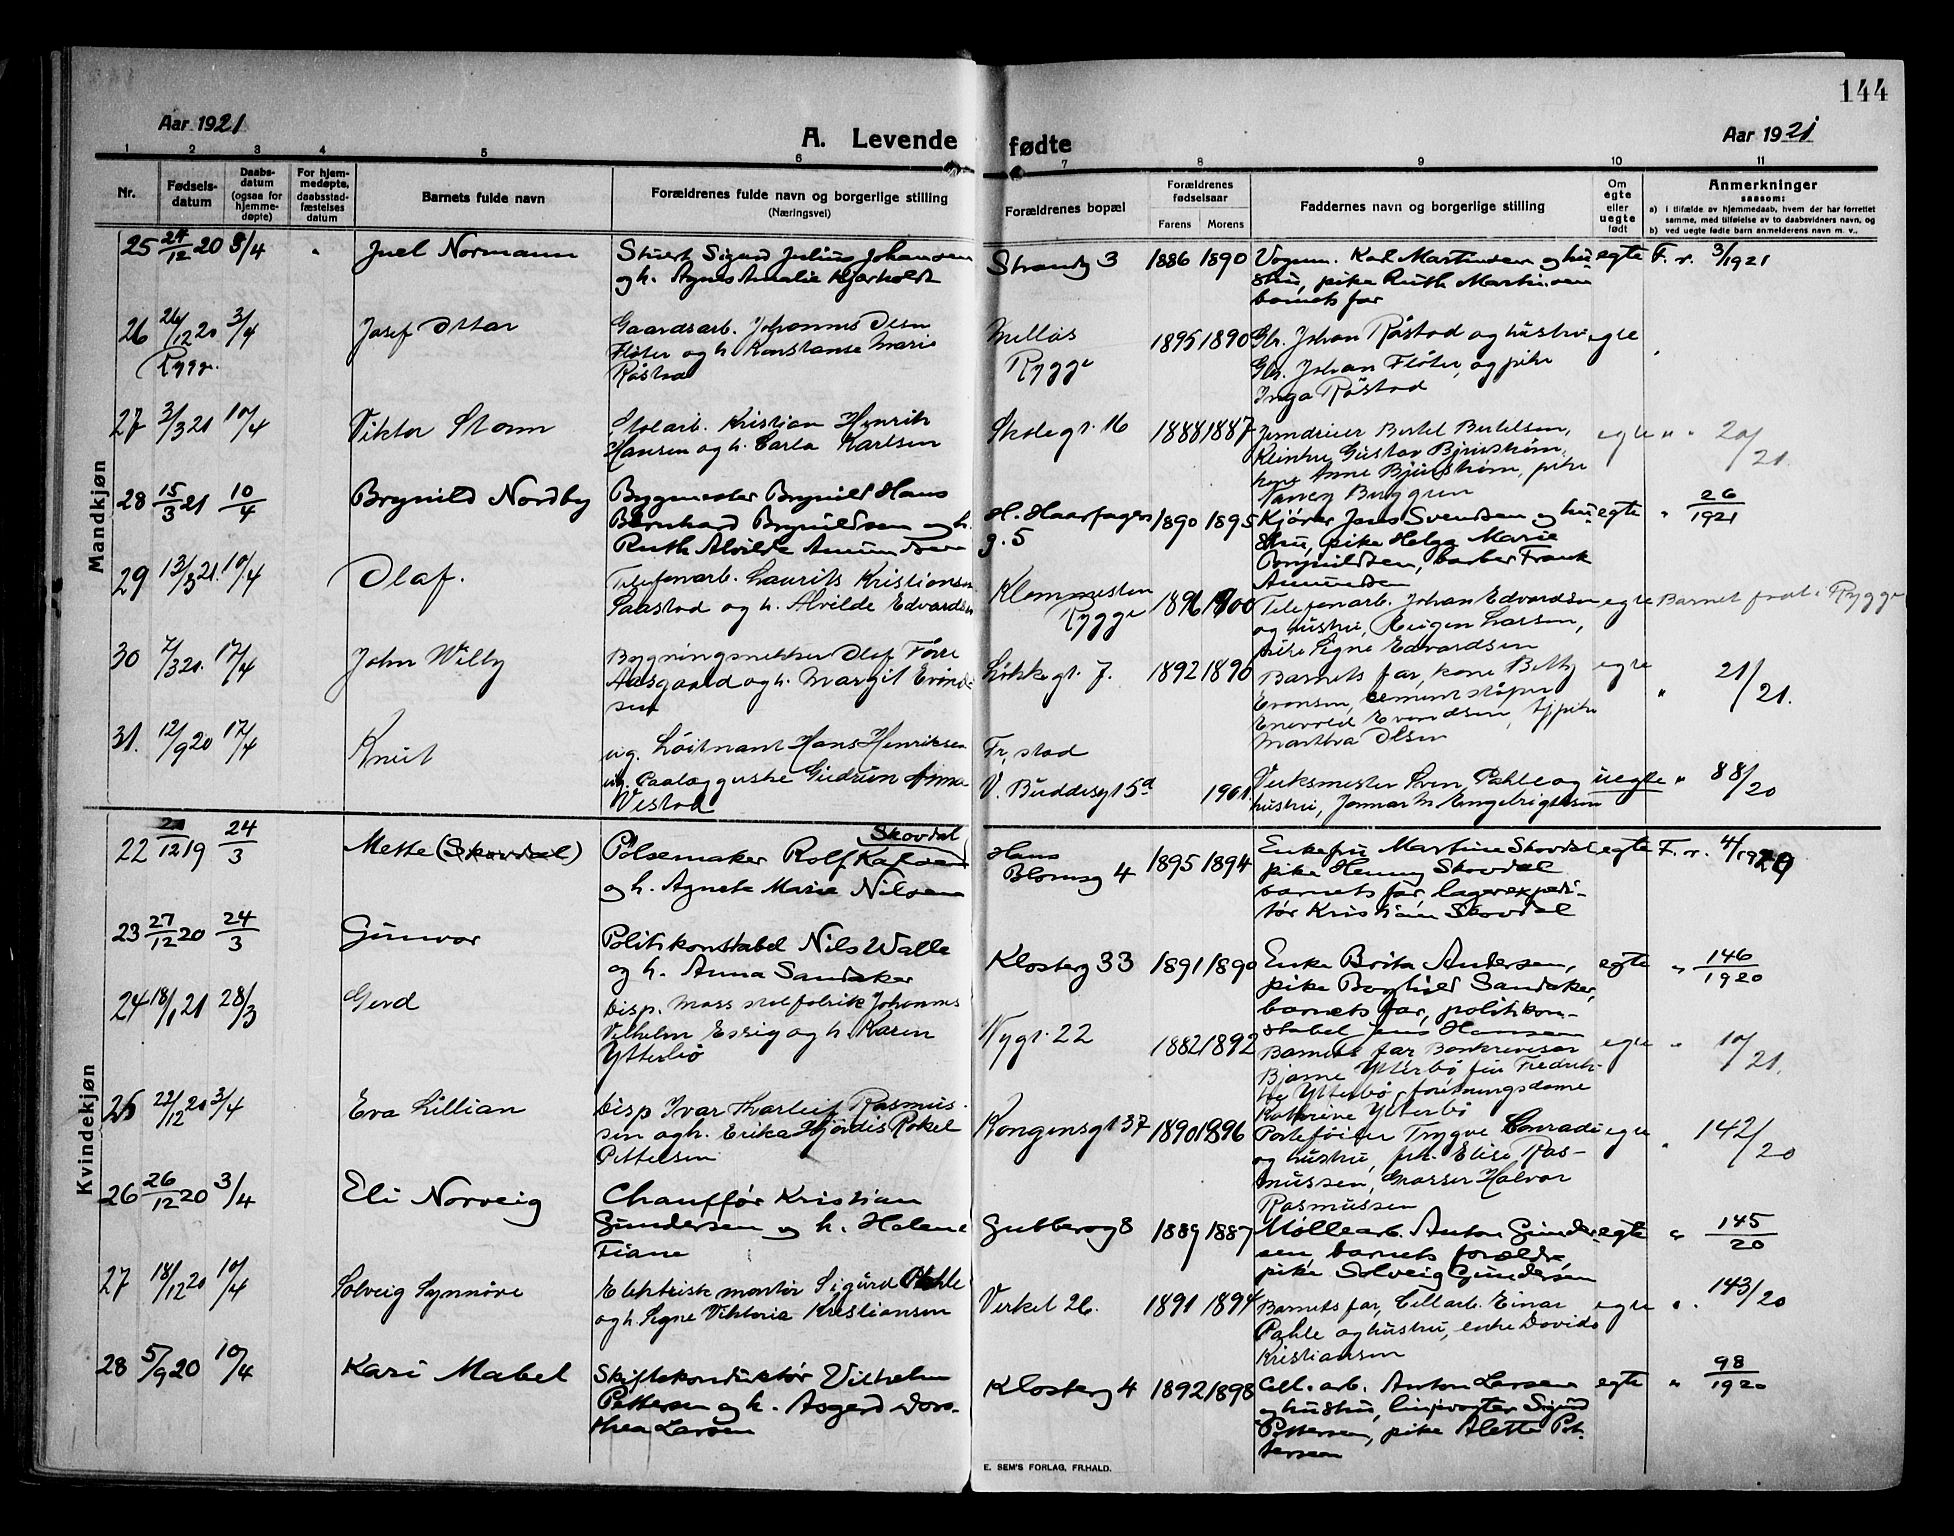 144
Aar 1921
A. Levende fødte
Aar 1921
1 2 3 4 5 6 7 8 9 10 11
Nr.
Fødsels-
datum
Daabs-
datum
(ogsaa for
hjemme-
døpte)
For hjem-
medøpte,
daabsstad-
fæstelses
datum
Barnets fulde navn
Forældrenes fulde navn og borgerlige stilling
(Næringsvei)
Forældrenes bopæl
Forældrenes
fødselsaar
Farens Morens
Faddernes navn og borgerlige stilling
Om
egte
eller
uegte
født
Anmerkninger
saasom:
a) i tilfælde av hjemmedaab, hvem der har forrettet
samme, med tilføielse av to daabsvidners navn, og
b) ved uegte fødte barn anmelderens navn m. v.,
Mandkjøn
25 24/12 20 3/4 Juel Normann
Stuert Sigurd Julius Johansen
og h. Agnes Amalie Kjærholdt
Strandg 3 1886 1890
Vognm. Karl Martinsen og hu-
stru, pike Ruth Martinsen
barnets far
egte F. r. 3/1921
26 26/12 20 3/4 Josef Ottar
Rygge
Gaardsarb. Johannes Olsen
Fløter og h. Konstanse Marie
Røstad
Melløs
Rygge
1895 1890
Gbr. Johan Røstad og hustru
Gbr. Johan Fløter, og pike
Inga Røstad
egte
27 3/3 21 10/4 Viktor Storm
Stolarb. Kristian Henrik
Hansen og h. Carla Karlsen
Skolegt. 16 1888 1887
Jerndreier Bertel Bertelsen,
Gustav Bjurstrøm,
kone Anne Bjurstrøm, pike
Nancy Berggren
egte " " 20/21.
28 15/3 21 10/4 Brynild Nordby
Bygmester Brynild Hans
Bernhard Brynildsen og h.
Ruth Alvilde Amundsen
H. Haarfagers
g. 5
1890 1895
Kjører Jens Svendsen og hu-
stru, pike Helga Marie
Brynildsen, barber Frank
Amundsen
egte " 26/1921
29 13/3 21. 10/4 Olaf.
Telefonarb. Laurits Kristiansen
Saastad og h. Alvilde Edvardsen
Klommesten
Rygge
1896 1900
Telefonarb. Johan Edvardsen
og hustru, Eugen Larsen,
pike Signe Edvardsen
egte Barnet født i Rygge
30 7/3 21. 17/4 John Wilby
Bygningsnekker Olaf Tore
Aasgaard og h. Margit Evend-
sen
Løkkegt. 7. 1892 1890
Barnets far, kone Betty
Evensen, cementstøper
Enevold Evendsen,
Martha Olsen
egte " 21/21.
31. 12/9 20 17/4 Knut
ug. Løitnant Hans Henriksen
ug. Paalæggerske Gudrun Anna
Vestad
Fr.stad
V. Buddesgt 5a
1901.
Verksmester Sven Pahle og
hustru, Engebrigtsen
uegte " 88/20
Kvindekjøn
22 21/12 19 24/3 Mette (Skovdal)
Skovdal
Pølsemaker Rolf Kalsen
og h. Agnete Marie Nilsen
Hans
Blomsg 4
1895 1894
Enkefru Martine Skovdal
pike Henny Skovdal
barnets far, lagerexpedi-
tør Kristian Skovdal
egte F. r. 4/1920
23 27/12 20 24/3 Gunvor
Politikonstabel Nils Walle
og h. Anna Sandaker
Klosterg 33 1891 1890
Enke Brita Andersen,
pike Borghild Sandaker,
barnets far, politikon-
stabel Jens Hansen
egte " 146/1920
24 18/1 21 28/3 Gerd
disp. Moss stolfabrik Johannes
Vilhelm Essig og h. Karen
Ytterbø
Nygt. 22 1882 1892
Barnets far Bankrevisor
Bjarne Ytterbø fru Fredrik-
ke Ytterbø, forretningsdame
Kathrine Ytterbø
egte " 10/21.
25 22/12 20 3/4 Eva Lillian
disp Ivar Tharleif Rasmus-
sen og h. Erika Hjørdis Rakel
Pettersen
Kongensgt 37 1890 1896
Porteføiller Trygve Conradi
og hustru, frk. Elise Ras-
mussen, Grosser Halvor
Rasmussen
egte " 142/20
26 26/12 20 3/4 Eli Norveig
Chauffør Kristian
Gundersen og h. Helene
Fiane
Gudberg 8 1889 1887
Møllearb. Anton Gunder-
sen, barnets forældre
pike Solveig Gundersen
egte " 145/20
27 18/12 20 10/4 Solveig Synnøve
Elektrisk montør Sigurd Pahle
og h. Signe Viktoria Kristiansen
Verket 26. 1891 1894
Barnets far, Cell arb. Einar
Pahle og hustru, enke Davida
Kristiansen
egte " 143/20
28 5/9 20 10/4 Kari Mabel
Skiftekonduktør Vilhelm
Pettersen og h. Asgerd Doro-
thea Larsen
Klosterg 4 1892 1898
Cell. arb. Anton Larsen
og hustru, linjevogter Sigurd
Pettersen, pike Alette Pet-
tersen
egte " 98/1920
E. SEM'S FORLAG, FR.HALD.